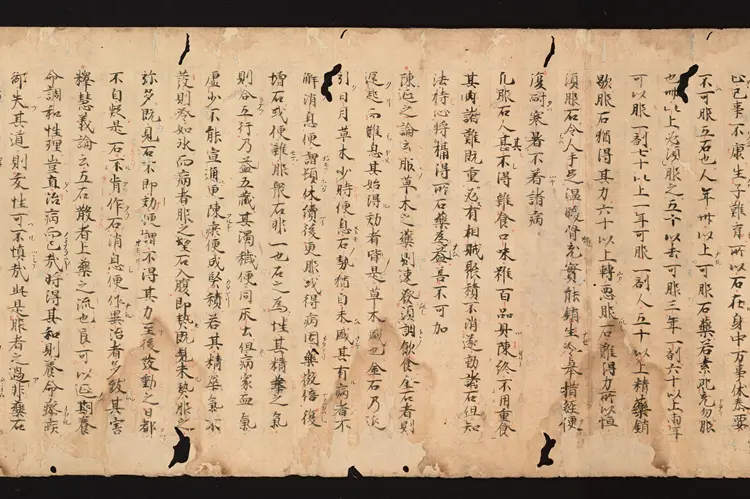 以己事不康生子難育所以石在身中万事休泰要
不可服五石也人年卅以上可服石藥若素肥充勿服
也卌以上必須服之五十以去可服三年一剤六十以上兩年
可以服一剤七十以上一年可服一剤人五十以上精藥銷
歇服石猶得其力六十以上轉悪服石難得力所以恒
須服石令人手足温暖骨充實能銷生冷舉措輕便
復耐寒暑不着諸病
凡服石人甚不得雜食口味雖百品具陳終不用重食
其肉諸雜既重必有相賊聚積不消遂動諸石但知
法持心將攝得所石藥為益善不可加
陳延之論云服草木之藥則速發須調飲食金石者則
遲起而難息其始得効者皆是草木盛也金石乃延
引日月草木少時便息石勢猶自未盛其有病者不
解消息便謂頓休續後更服或得病固藥復倍後
增石或便雜服衆石非一也石之為性其精藥之氣
則合五行乃益五藏其濁穢便同灰土但病家血氣
虚少不能宣通更陳瘀便成堅積若其精華氣不
發則冷如氷而病者服之望石入腹即熱既見未熱服之
弥多既見石不即効便謂不得其力至後發動之日都
不自疑是石不肯作石消息便作異治者多致其害
釋慧義論云五石散者上藥之流也良可以延期養
命調和性理豈直治病而已哉時得其和則養命瘳疾
御失其道則夭性可不慎哉此是服者之過非藥石